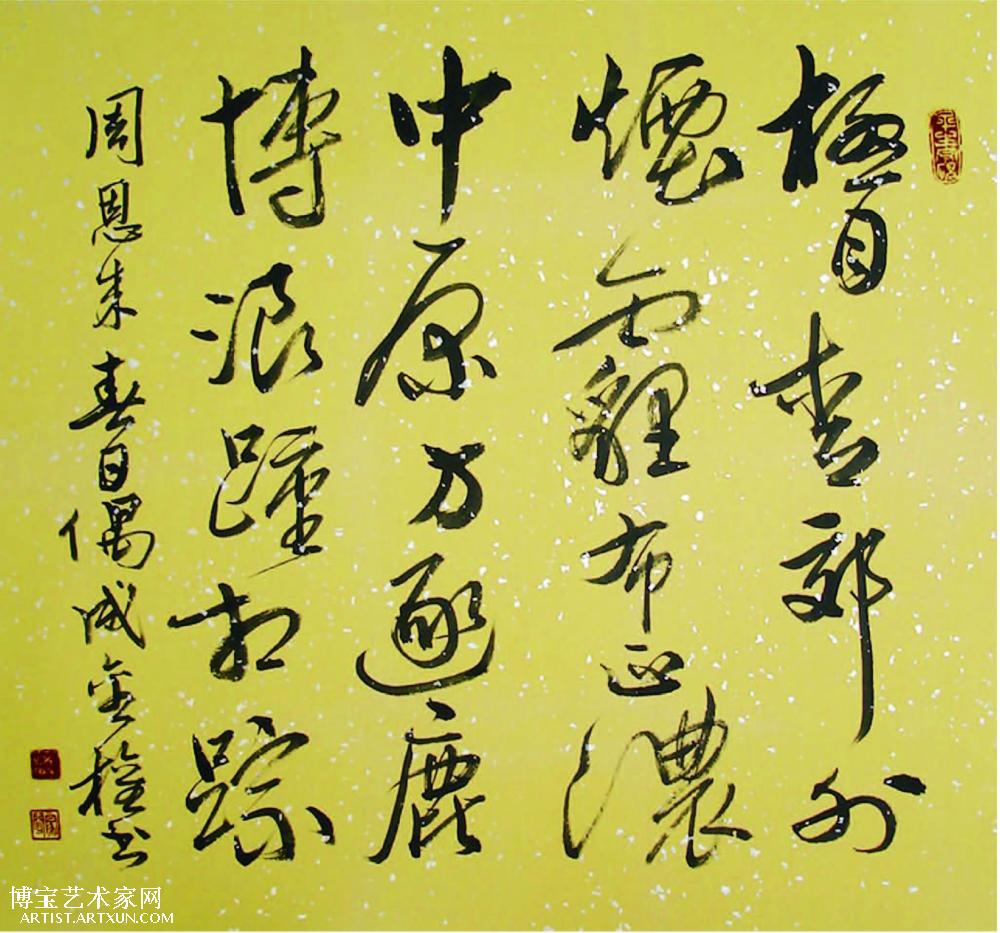 極目青郊外
煙霾布正濃
中原方逐鹿
博浪踵相踪
周恩来春日偶成书
博宝艺术家网
ARTIST.ARTXUN.COM